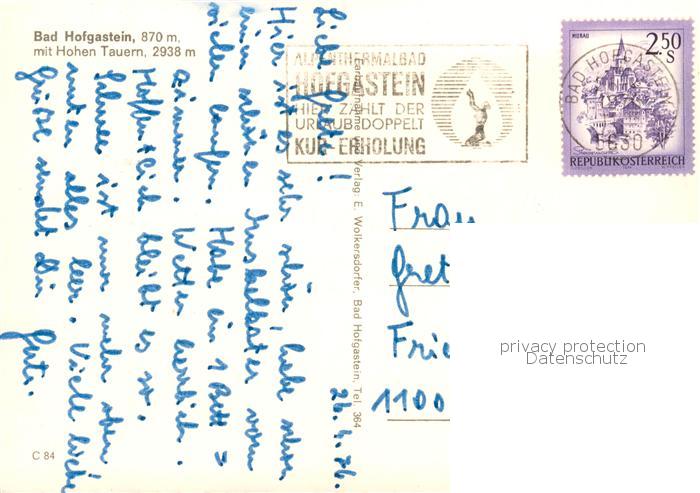 Bad Hofgastein, 870 m,
mit Hohen Tauern, 2938 m
ALPENTHERMALBAD
HOFGASTEIN
HIER ZÄHLT DER
URLAUB DOPPELT
KUR-ERHOLUNG
MURAU
2.50
S
BAD HOFGASTEIN
5630
REPUBLIK ÖSTERREICH
Farbaufnahme Verlag: E. Wolkersdorfer, Bad Hofgastein, Tel. 364
26.4.76.
Hier ist es sehr schön! habe schon
einen schönen Muskelkater vom
vielen laufen. Habe ein 1 Bett =
zimmer. Wetter herrlich.
Hoffentlich bleibt es so.
Schnee ist nur mehr oben
unten alles leer. Viele liebe
Grüße sendet Dir
Frau
Gret
Frie
1100
C 84
privacy protection
Datenschutz